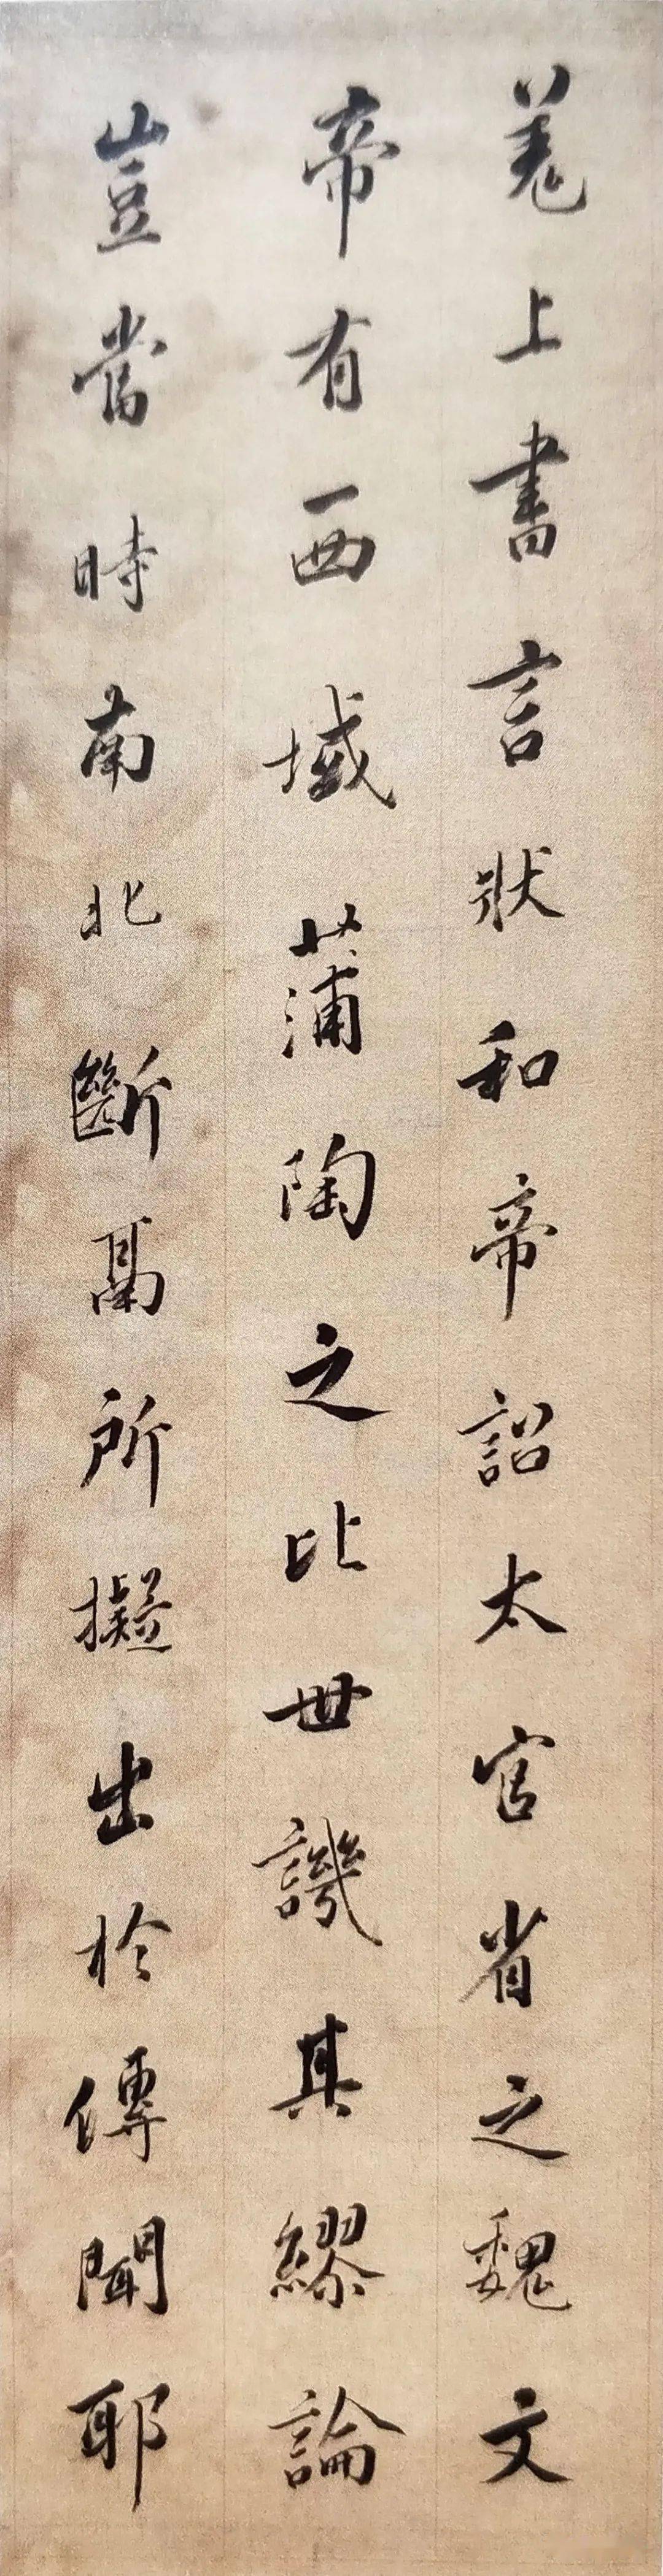 羌上書言狀和帝詔太官省之魏文
帝有西域蒲陶之比世譏其繆論
豈當時南北斷鬲所擬出於傳聞耶